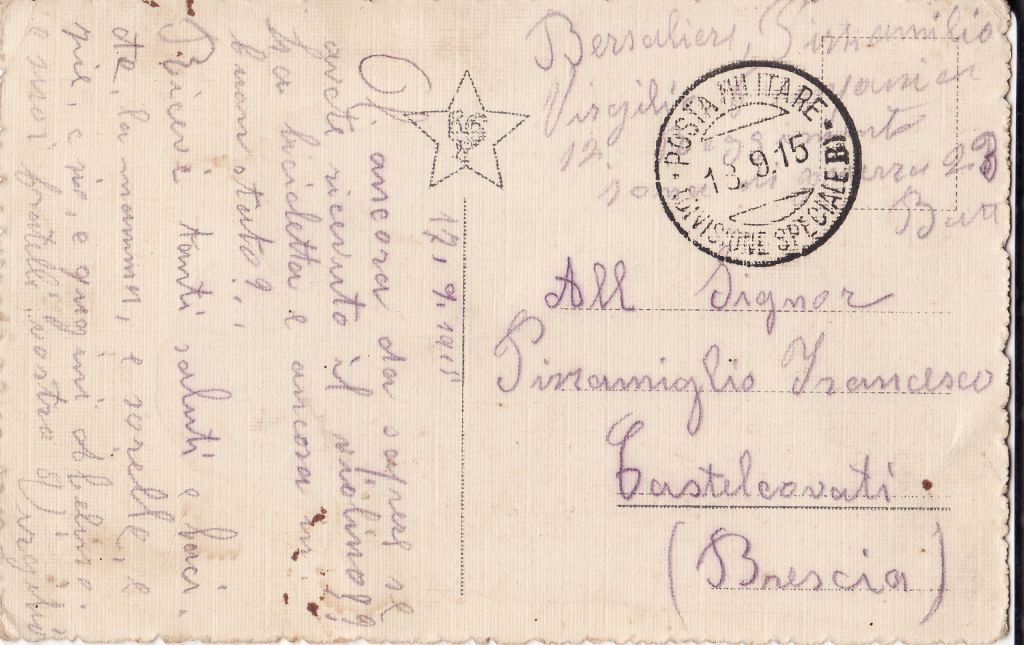 17, 9. 1915
ancora da sapere se
avete ricevuto il violino?
la bicicletta e ancora in
buon stato?.
Ricevi tanti saluti baci.
te, la mamma, e sorelle, e
zii, e zie, e cugini
e miei fratelli vostro Virgilio
Bersagliere, Pirramilio
Virgilio
12.
23
Batt
POSTA MILITARE
18.9.15
DIVISIONE SPECIALE B
All Signor
Pirramiglio Francesco
Castelcovati
(Brescia)